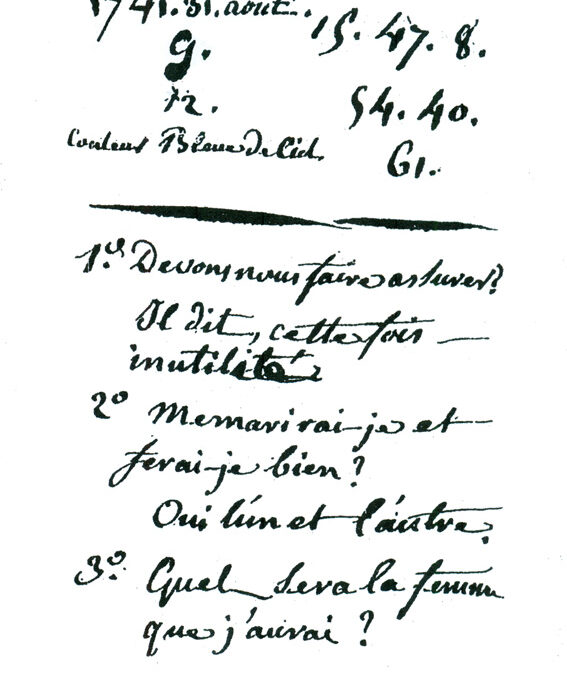 1741. 31. aout. 15. 47. 8.
9.
72. 54. 40.
Couleur Bleue de Ciel. 61.
1.º Devons nous faire assurer?
Il dit, cette fois —
inutilité
2º Me marirai-je et —
ferai-je bien?
Oui l'un et l'autre.
3.º Quel sera la femme
que j'aurai?